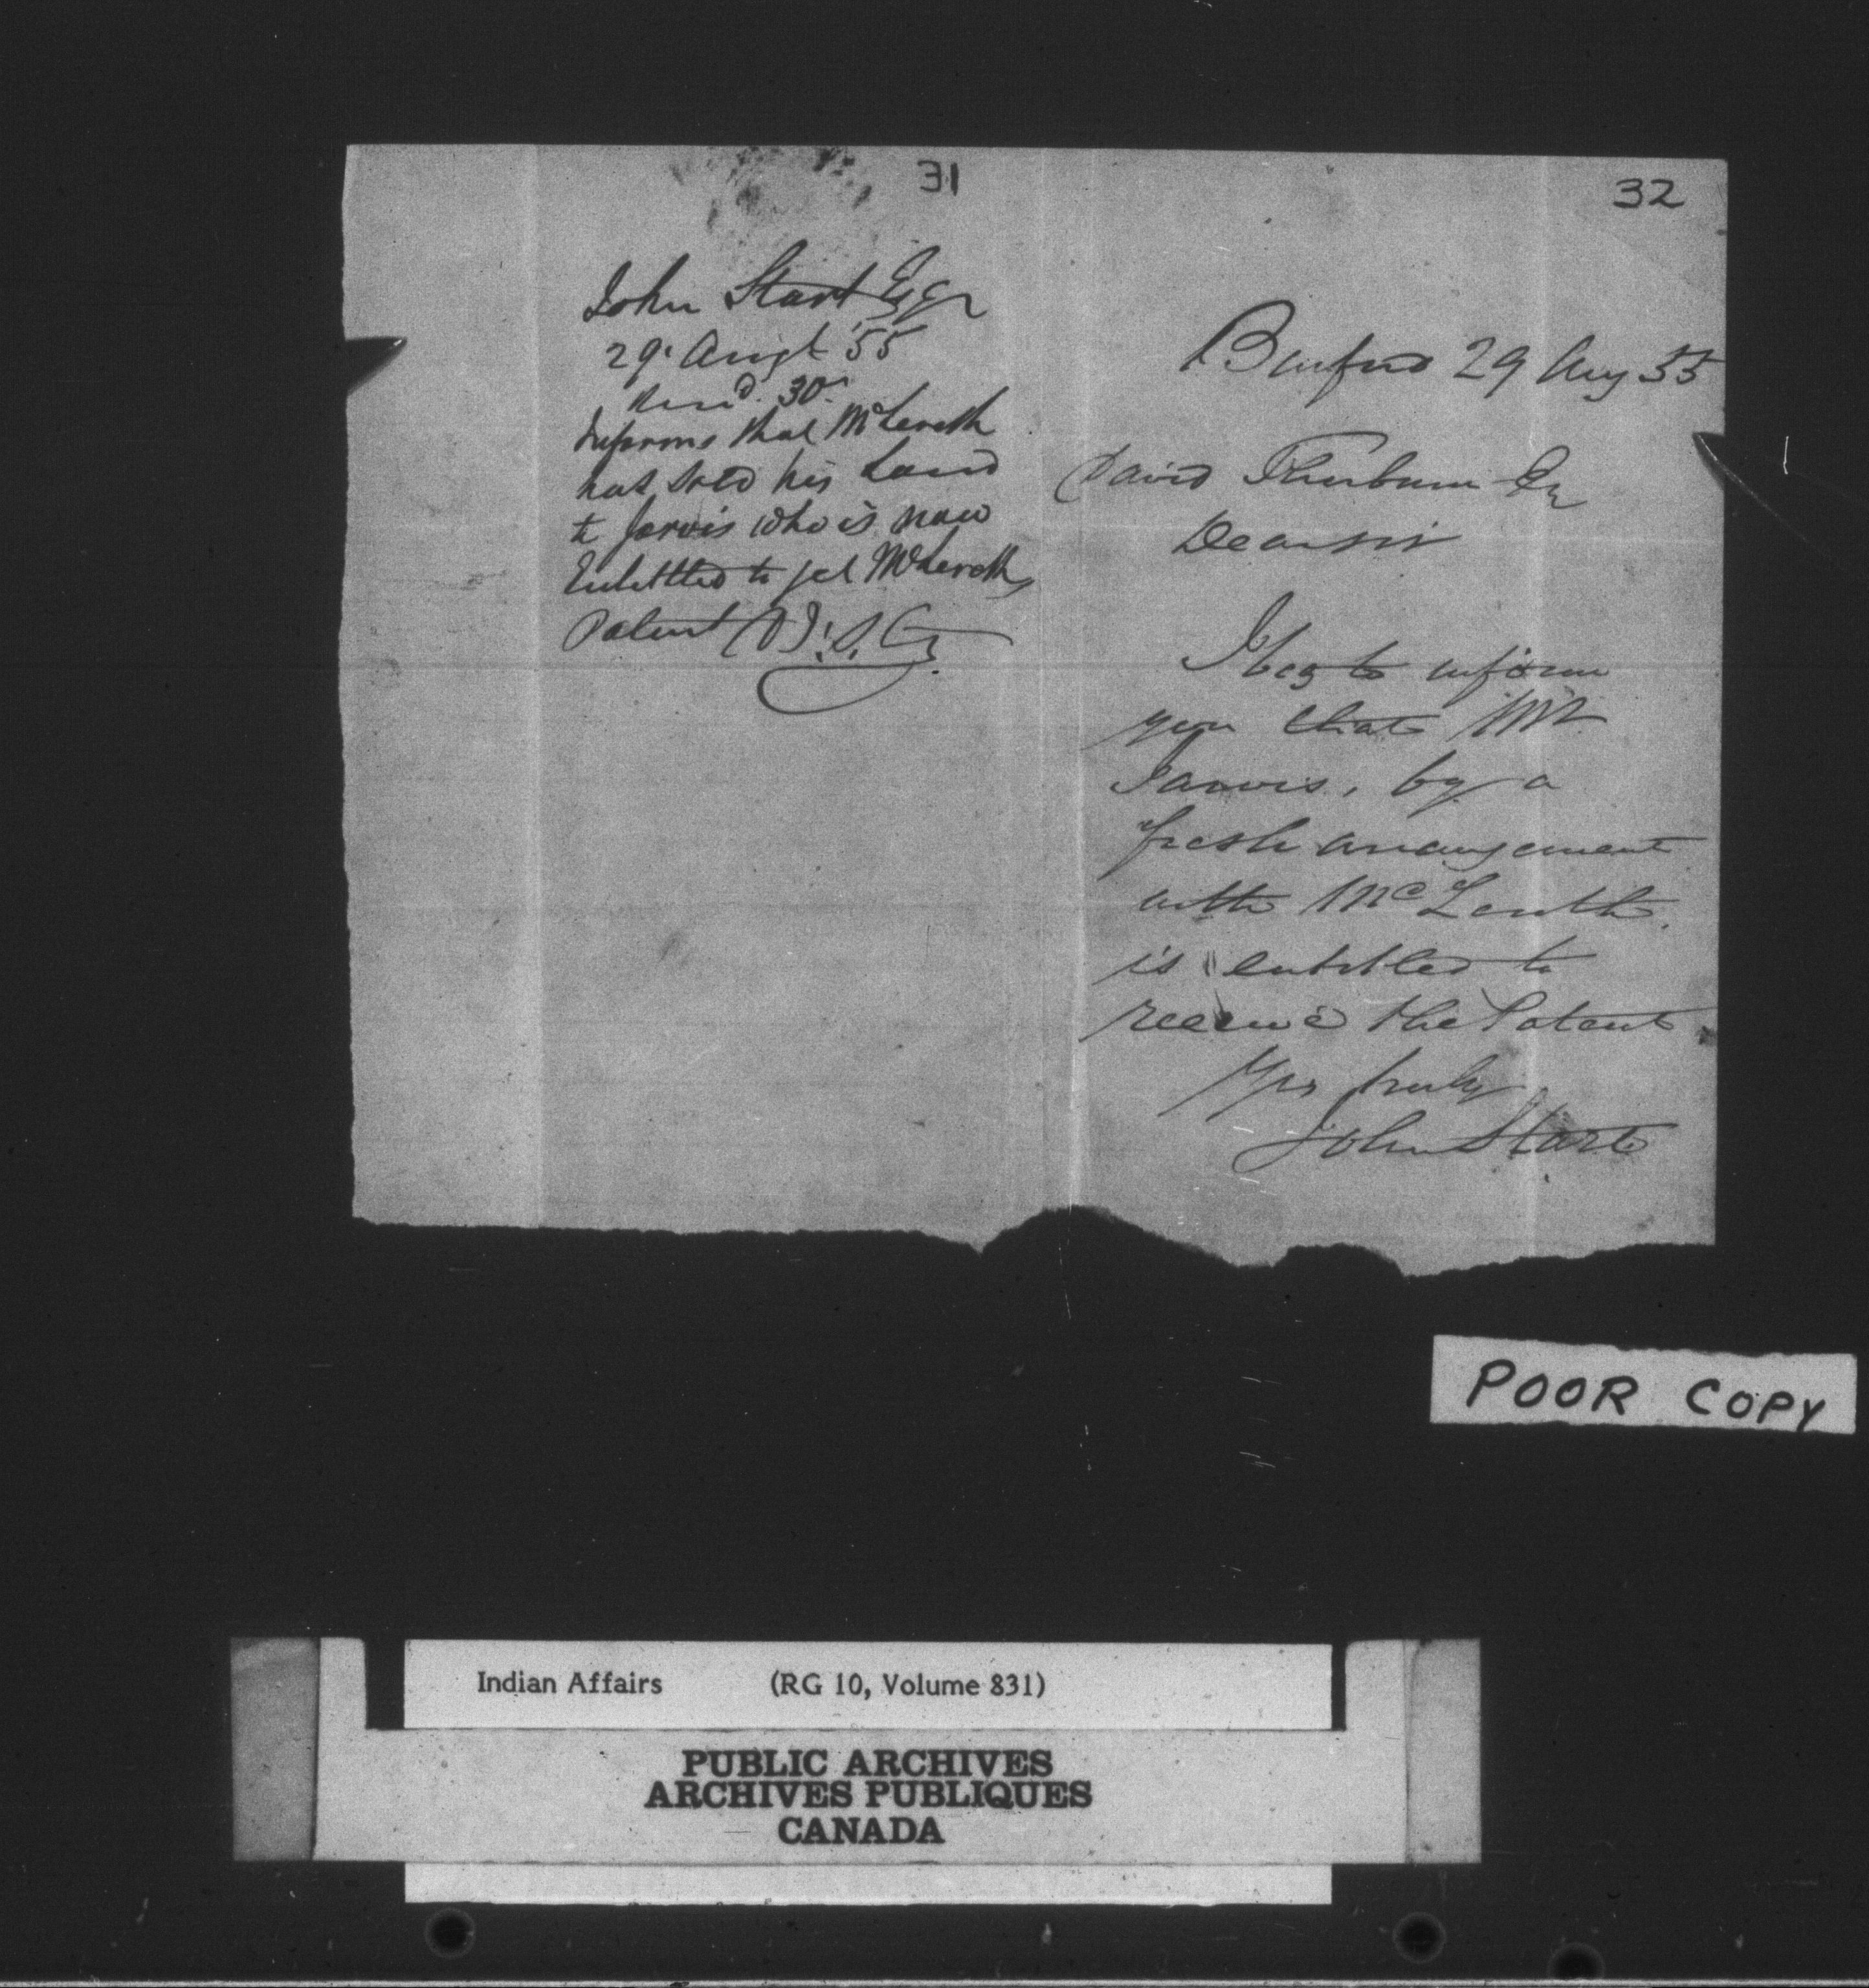 31
John Start Esqr
29. Augt '55
30
Informs that
has sold his Land
to Jarvis who is now
Entittled to get
Patent
32
29 Aug 55
David Thorburn Esq
Dear sir
I beg to inform
you that Mr
Jarvis, by a
fresh arrangement
with
is entitled to
receive the Patent
Yrs truly
John Start
POOR COPY
Indian Affairs (RG 10, Volume 831)
PUBLIC ARCHIVES
ARCHIVES PUBLIQUES
CANADA